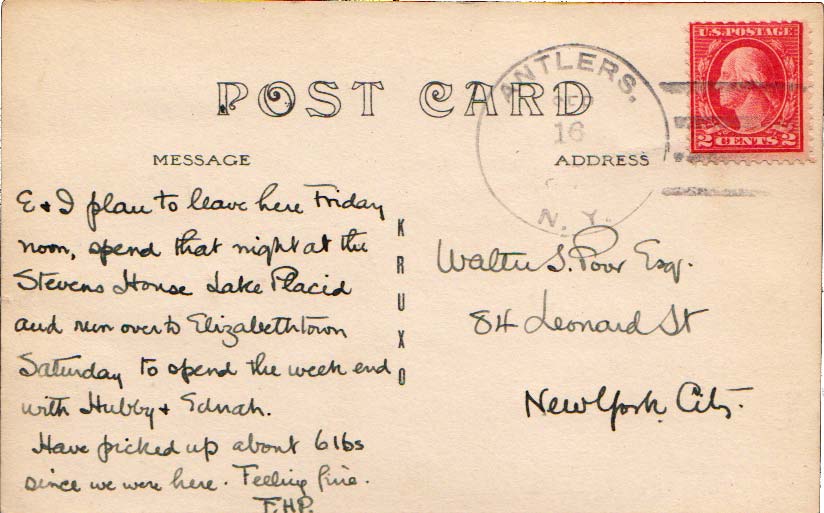 U.S. POSTAGE
2 CENTS 2
ANTLERS.
SEP
16
N. Y.
POST CARD
MESSAGE
ADDRESS
E & I plan to leave here Friday
noon, spend that night at the
Stevens House Lake Placid
and run over to Elizabethtown
Saturday to spend the week end
with Hubby & Ednah.
Have picked up about 6 lbs
since we were here. Feeling fine.
F.H.P.
KRUXO
Walter S. Poor Esq.
84 Leonard St
New York City.